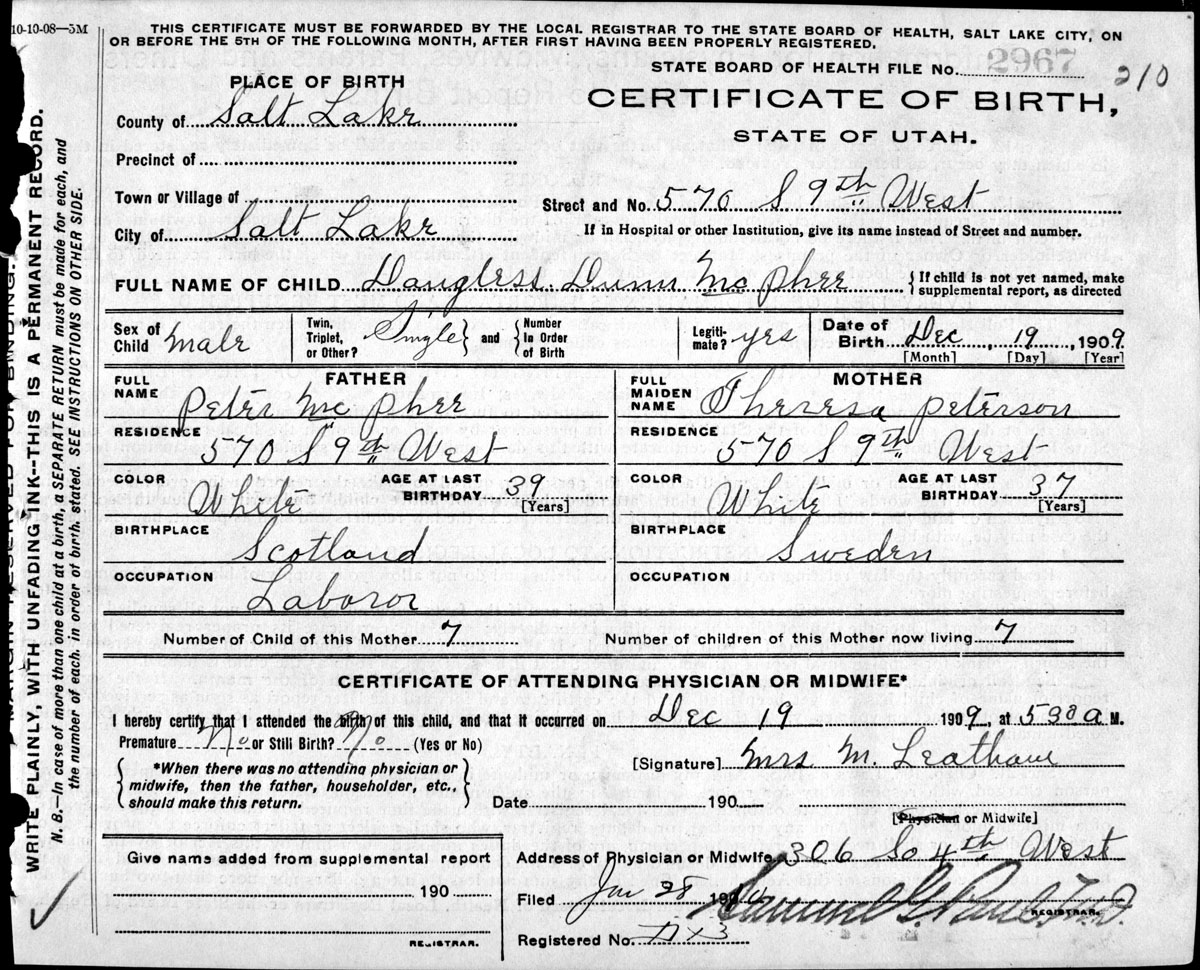 10-10-08—5M
THIS CERTIFICATE MUST BE FORWARDED BY THE LOCAL REGISTRAR TO THE STATE BOARD OF HEALTH, SALT LAKE CITY, ON
OR BEFORE THE 5TH OF THE FOLLOWING MONTH, AFTER FIRST HAVING BEEN PROPERLY REGISTERED.
STATE BOARD OF HEALTH FILE No. 2967 210
CERTIFICATE OF BIRTH,
STATE OF UTAH.
PLACE OF BIRTH
County of Salt Lake
Precinct of
Town or Village of
City of Salt Lake
Street and No. 570 S 9th West
If in Hospital or other Institution, give its name instead of Street and number.
FULL NAME OF CHILD Daugless Dunn Mc Phee {If child is not yet named, make
supplemental report, as directed
Sex of Child male
Twin, Triplet, or Other? Single } and { Number In Order of Birth
Legitimate? yes
Date of Birth Dec, 19, 1909
[Month] [Day] [Year]
FATHER
FULL NAME Peter Mc Phee
RESIDENCE 570 S 9th West
COLOR White AGE AT LAST BIRTHDAY 39 [Years]
BIRTHPLACE Scotland
OCCUPATION Laboror
MOTHER
FULL MAIDEN NAME Theresa Peterson
RESIDENCE 570 S 9th West
COLOR White AGE AT LAST BIRTHDAY 37 [Years]
BIRTHPLACE Sweden
OCCUPATION
Number of Child of this Mother 7 Number of children of this Mother now living 7
CERTIFICATE OF ATTENDING PHYSICIAN OR MIDWIFE*
I hereby certify that I attended the birth of this child, and that it occurred on Dec 19 1909, at 538 a M.
Premature No or Still Birth? No (Yes or No)
{*When there was no attending physician or
midwife, then the father, householder, etc.,
should make this return.}
[Signature] Mrs M. Leatham
Date 190
[Physician or Midwife]
Address of Physician or Midwife 306 So 4th West
Give name added from supplemental report
190
REGISTRAR.
Filed Jan 28 1910 Samuel G. Paul M.D.
REGISTRAR.
Registered No.
MARGIN RESERVED FOR BINDING.
WRITE PLAINLY, WITH UNFADING INK--THIS IS A PERMANENT RECORD.
N. B.—In case of more than one child at a birth, a SEPARATE RETURN must be made for each, and
the number of each, in order of birth, stated. SEE INSTRUCTIONS ON OTHER SIDE.